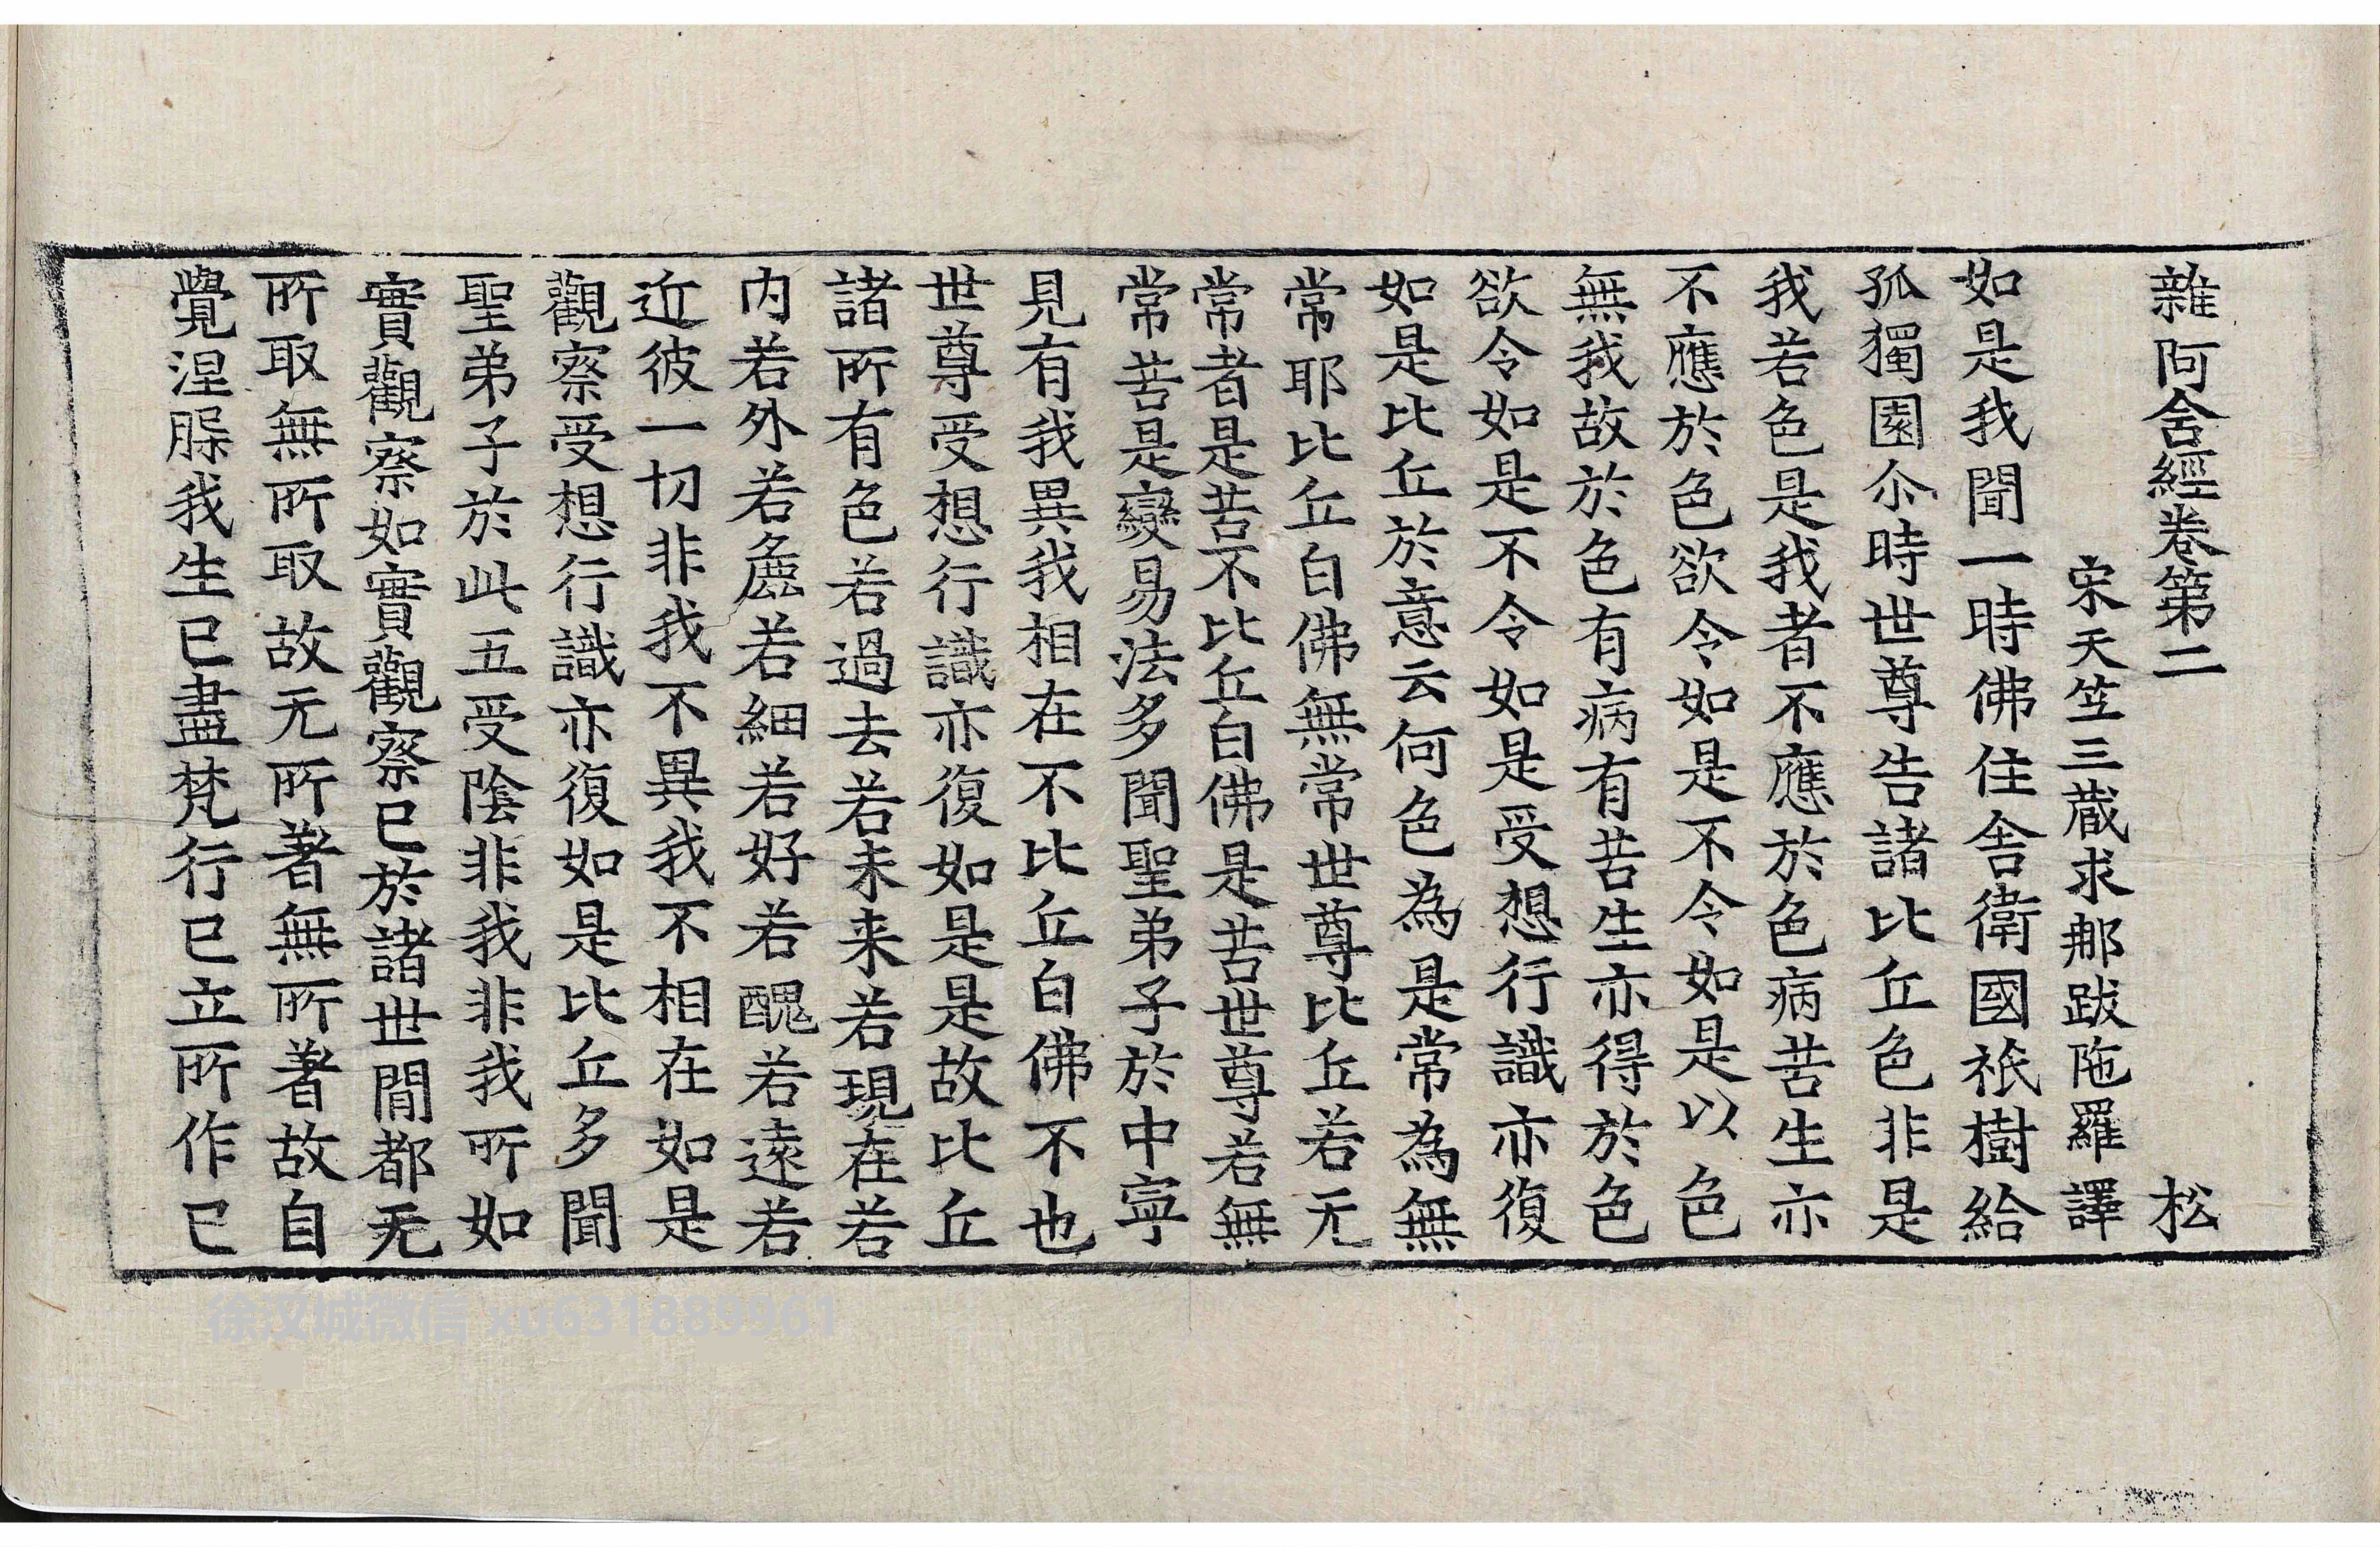 雜阿含經卷第二 松
宋天竺三藏求那跋陁羅譯
如是我聞一時佛住舍衛國祇樹給
孤獨園尒時世尊告諸比丘色非是
我若色是我者不應於色病苦生亦
不應於色欲令如是不令如是以色
無我故於色有病有苦生亦得於色
欲令如是不令如是受想行識亦復
如是比丘於意云何色為是常為無
常耶比丘白佛無常世尊比丘若无
常者是苦不比丘白佛是苦世尊若無
常苦是變易法多聞聖弟子於中寧
見有我異我相在不比丘白佛不也
世尊受想行識亦復如是是故比丘
諸所有色若過去若未来若現在若
内若外若麁若細若好若醜若遠若
近彼一切非我不異我不相在如是
觀察受想行識亦復如是比丘多聞
聖弟子於此五受陰非我非我所如
實觀察如實觀察已於諸世間都无
所取無所取故无所著無所著故自
覺涅槃我生已盡梵行已立所作已
徐汉城微信 xu631889961